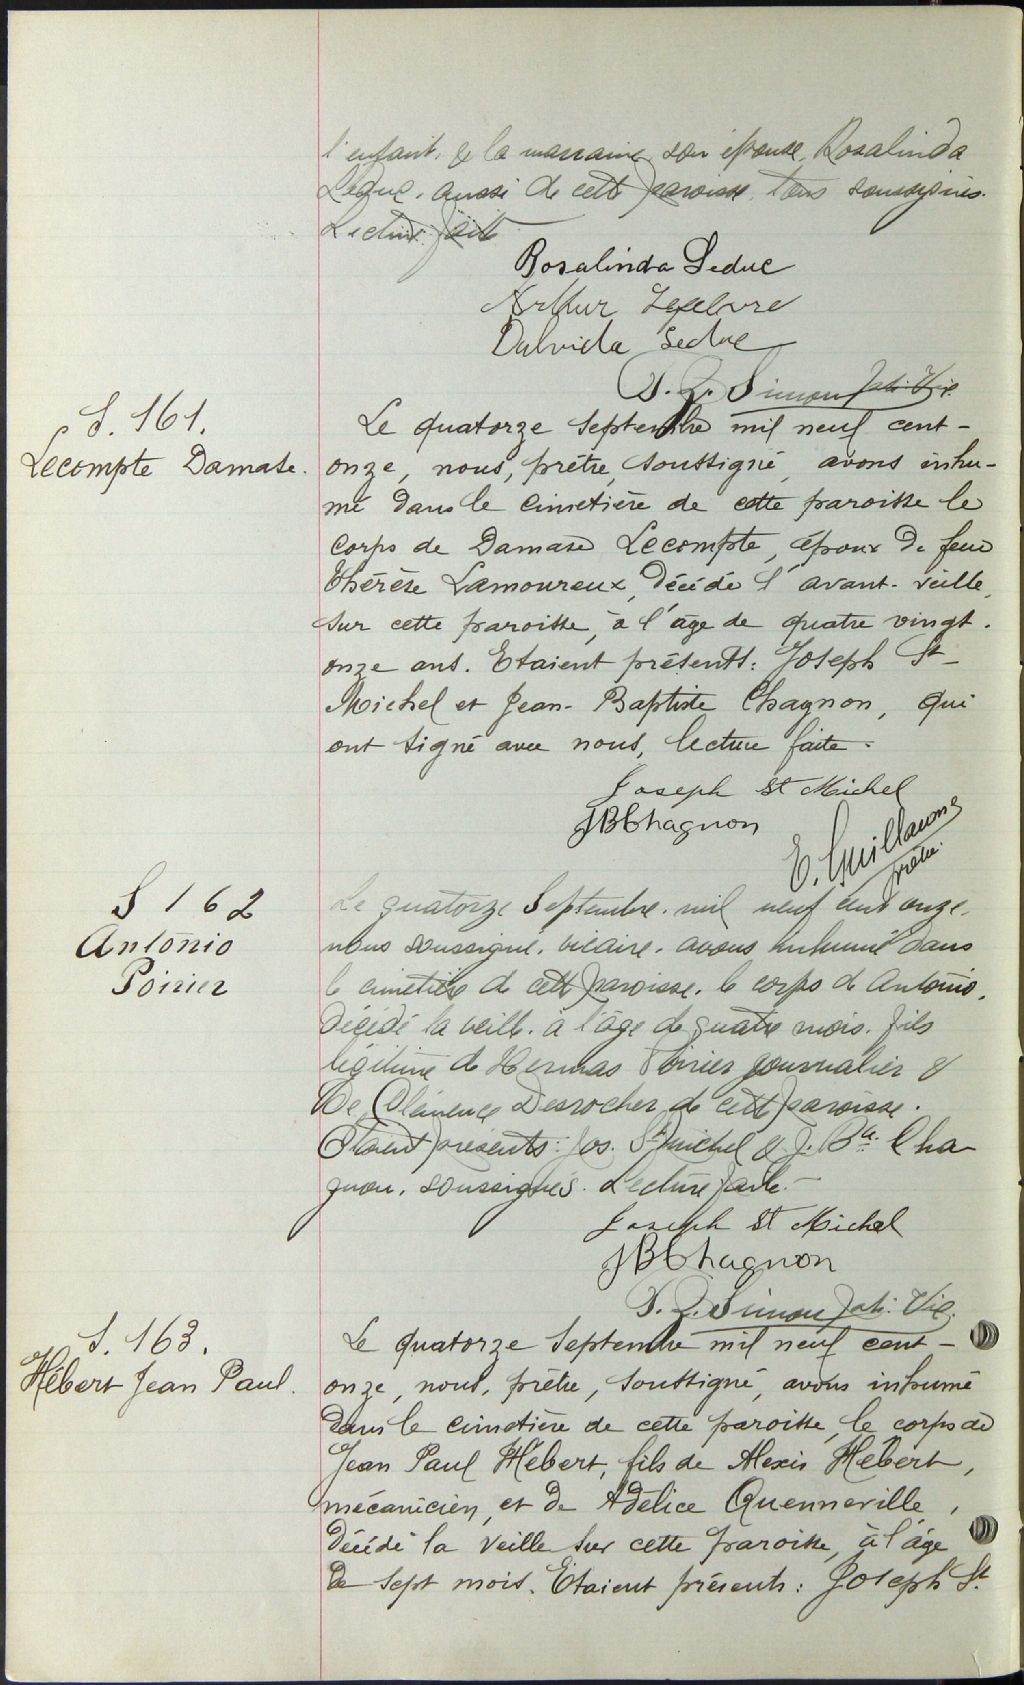 l'enfant, & la marraine son épouse, Rosalinda
Leduc, aussi de cette paroisse, tous soussignés.
Lecture faite
Rosalinda Leduc
Arthur Lefebvre
Dalvida Leduc
Simon Ptr. Vic.
S. 161.
Lecompte Damase.
Le quatorze Septembre mil neuf cent-
onze, nous, prêtre, soussigné, avons inhu-
mé dans le cimetière de cette paroisse le
corps de Damase Lecompte, époux de feue
Thérèse Lamoureux, décédé l'avant-veille,
sur cette paroisse, à l'âge de quatre vingt-
onze ans. Etaient présents: Joseph St-
Michel et Jean-Baptiste Chagnon, qui
ont signé avec nous, lecture faite.
Joseph St Michel
JBChagnon
E. Guillaume
prêtre.
S 162
Antonio
Poirier
Le quatorze Septembre, mil neuf cent onze,
nous soussigné, vicaire, avons inhumé dans
le cimetière de cette paroisse, le corps de Antonio,
décédé la veille, à l'âge de quatre mois, fils
légitime de Hermas Poirier journalier &
De Clémence Desrocher de cette paroisse.
Etaient présents: Jos. St Michel & J. Bte Cha-
gnon, soussignés. Lecture faite.
Joseph St Michel
JBChagnon
Simon Ptr. Vic.
S. 163.
Hébert Jean Paul.
Le quatorze Septembre mil neuf cent-
onze, nous, prêtre, soussigné, avons inhumé
dans le cimetière de cette paroisse, le corps de
Jean Paul Hébert, fils de Alexis Hébert,
mécanicien, et de Adélice Quenneville,
décédé la veille sur cette paroisse, à l'âge
de sept mois. Etaient présents: Joseph St